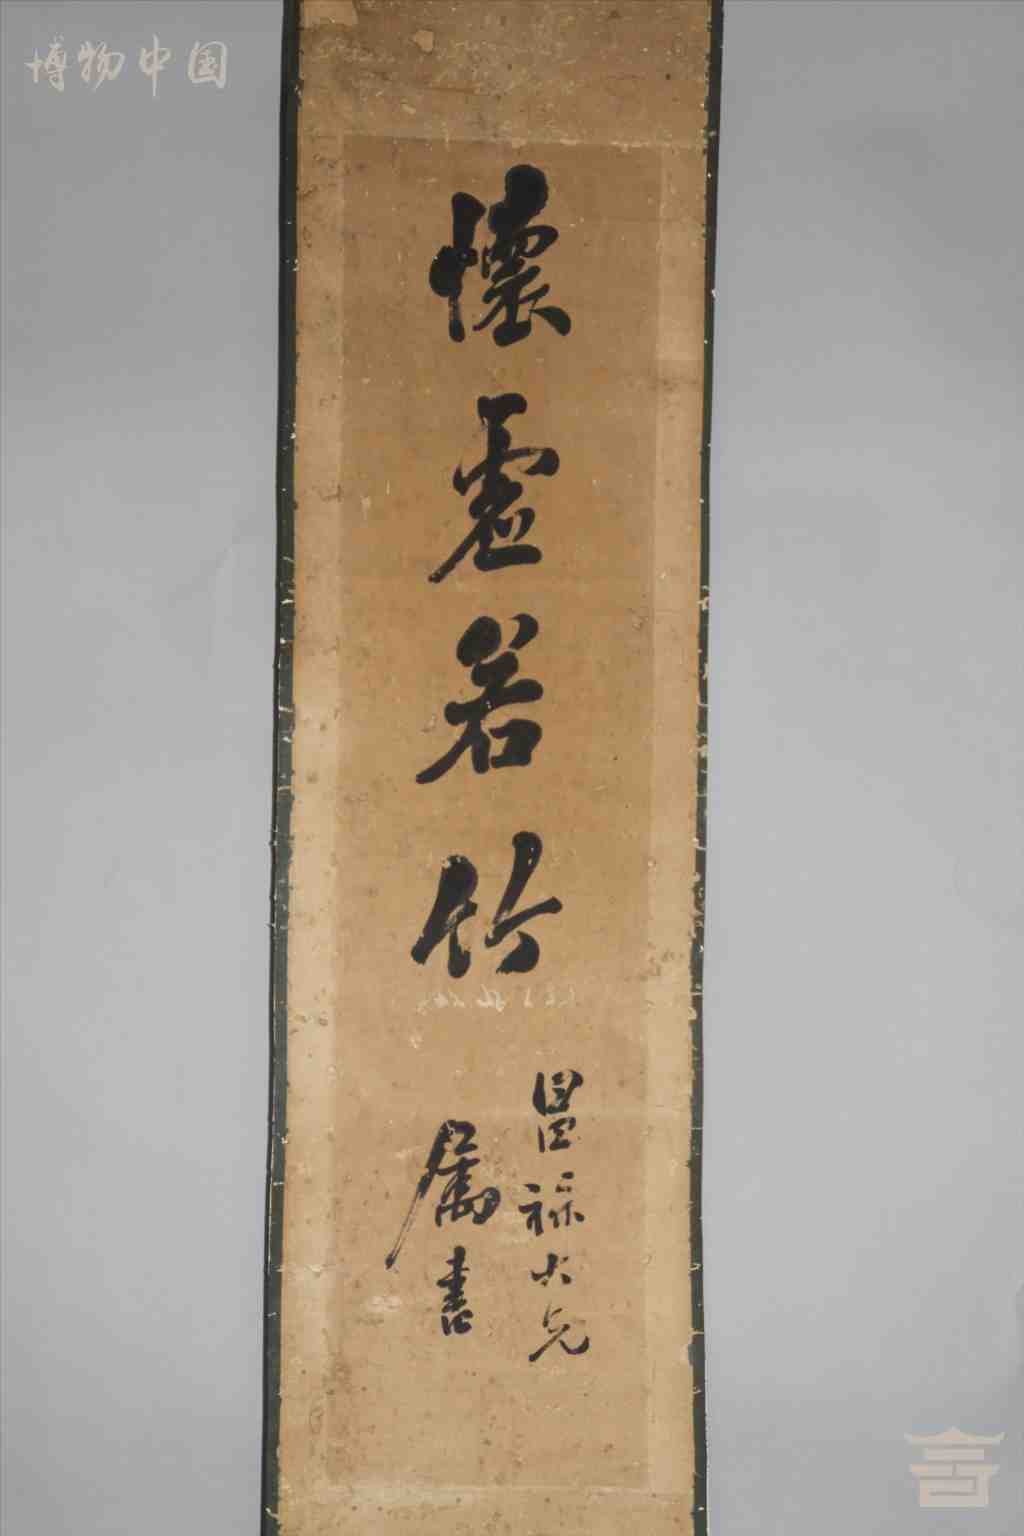 博物中国
懷虛若竹
昌祿大兄
屬書